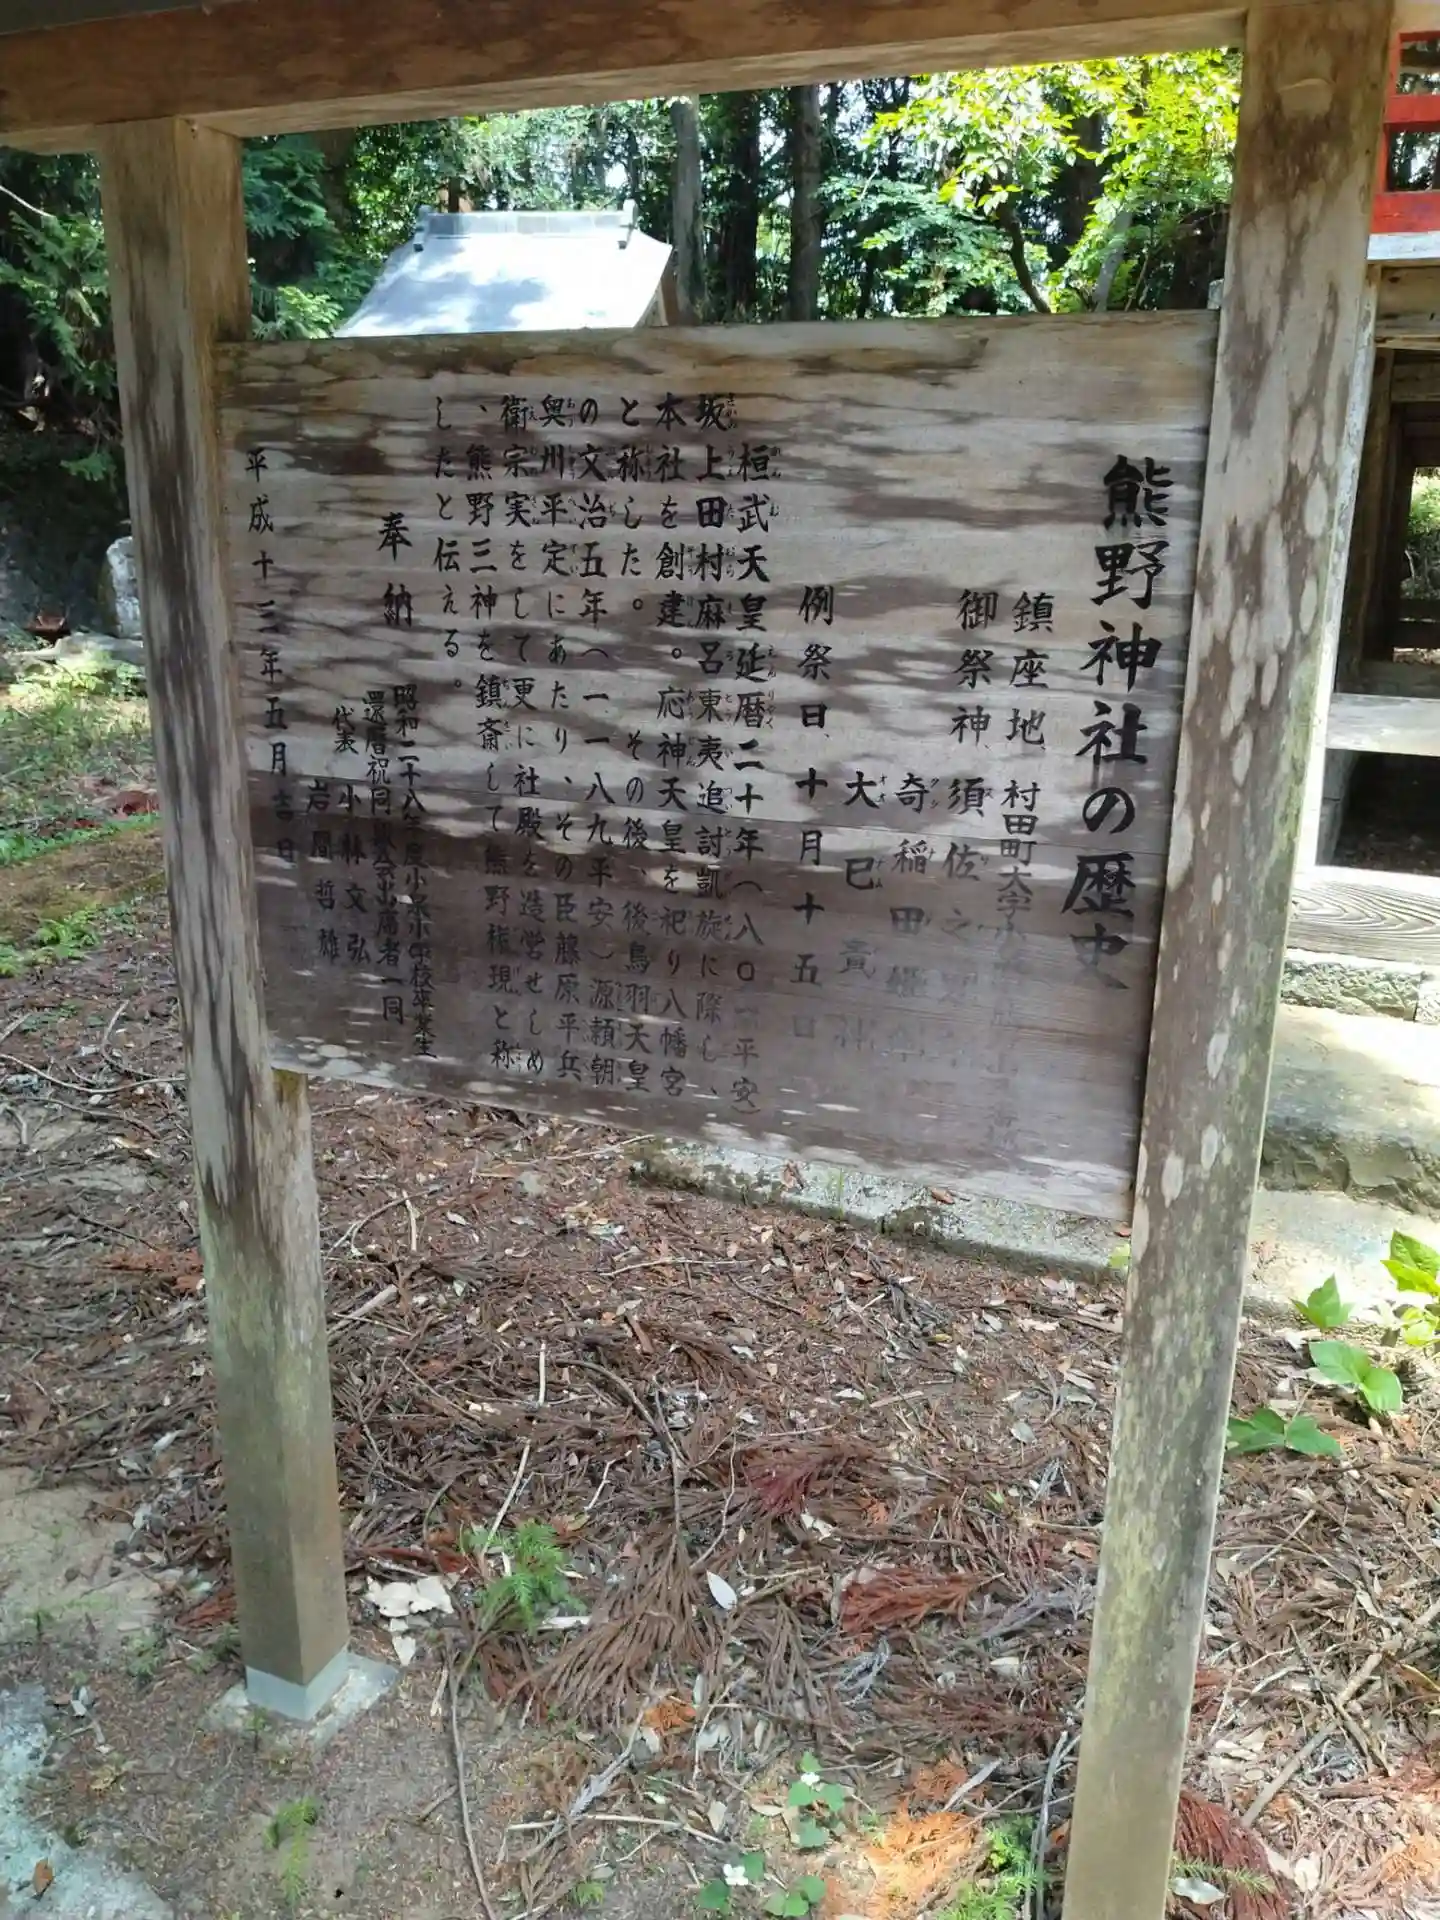 熊野神社の歴史
鎮座地、村田町大字小
御祭神、須佐之
奇稲田姫
大巳貴神
例祭日、十月十五日
桓武天皇延暦二十年(八〇一平安)
坂上田村麻呂東夷追討凱旋に際し、
本社を創建。応神天皇を祀り八幡宮
と称した。その後、後鳥羽天皇
の文治五年(一、一八九平安)源頼朝
奥州平定にあたり、その臣藤原平兵
衛宗実をして更に社殿を造営せしめ
、熊野三神を鎮斎して熊野権現と称
したと伝える。
奉納 昭和二十八年度小泉小学校卒業生
還暦祝同級会出席者一同
代表 小林文弘
岩間哲雄
平成十三年五月吉日